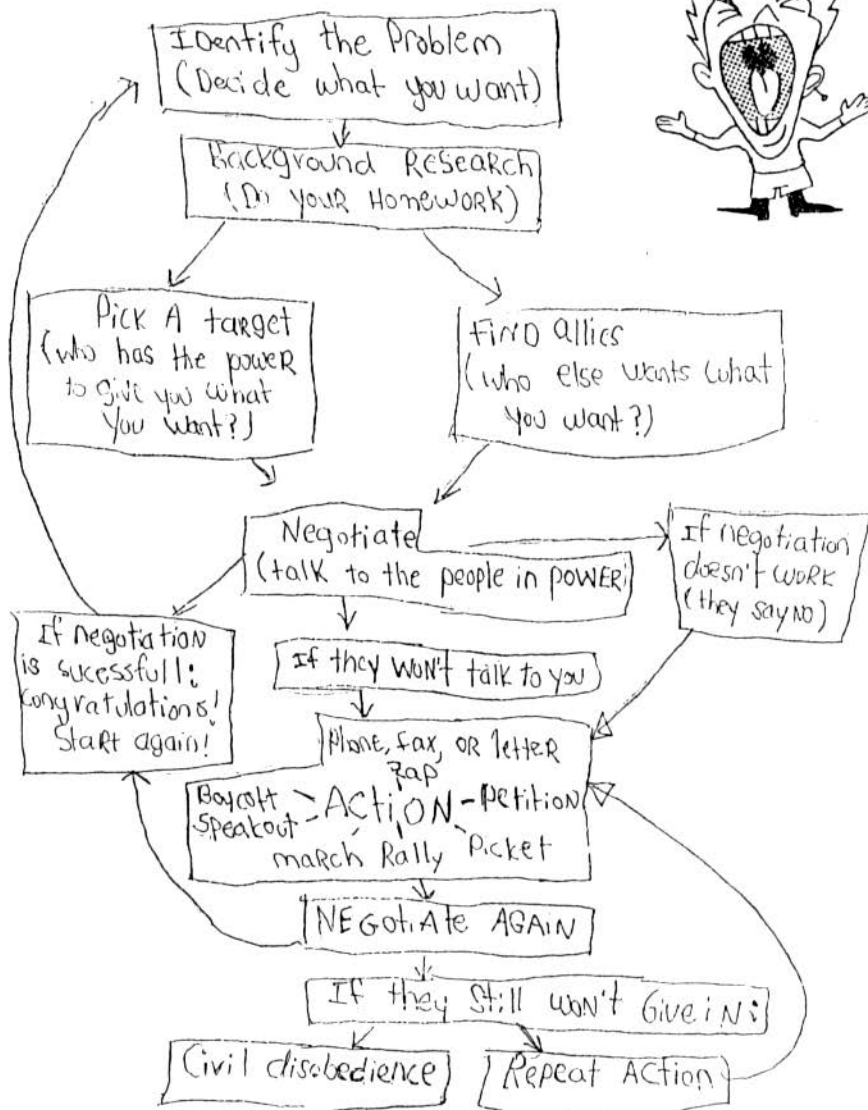 Identify the Problem
(Decide what you want)
Background Research
(Do your Homework)
Pick A target
(who has the power
to give you what
you want?)
Find allies
(who else wants what
you want?)
Negotiate
(talk to the people in power)
If negotiation
doesn't work
(they say no)
If negotiation
is sucessfull:
congratulations!
Start again!
If they won't talk to you
Phone, fax, or letter
zap
Boycott
Speakout
ACTION
Petition
march Rally Picket
NEGOTIATE AGAIN
If they still won't Give in:
Civil disobedience
Repeat Action